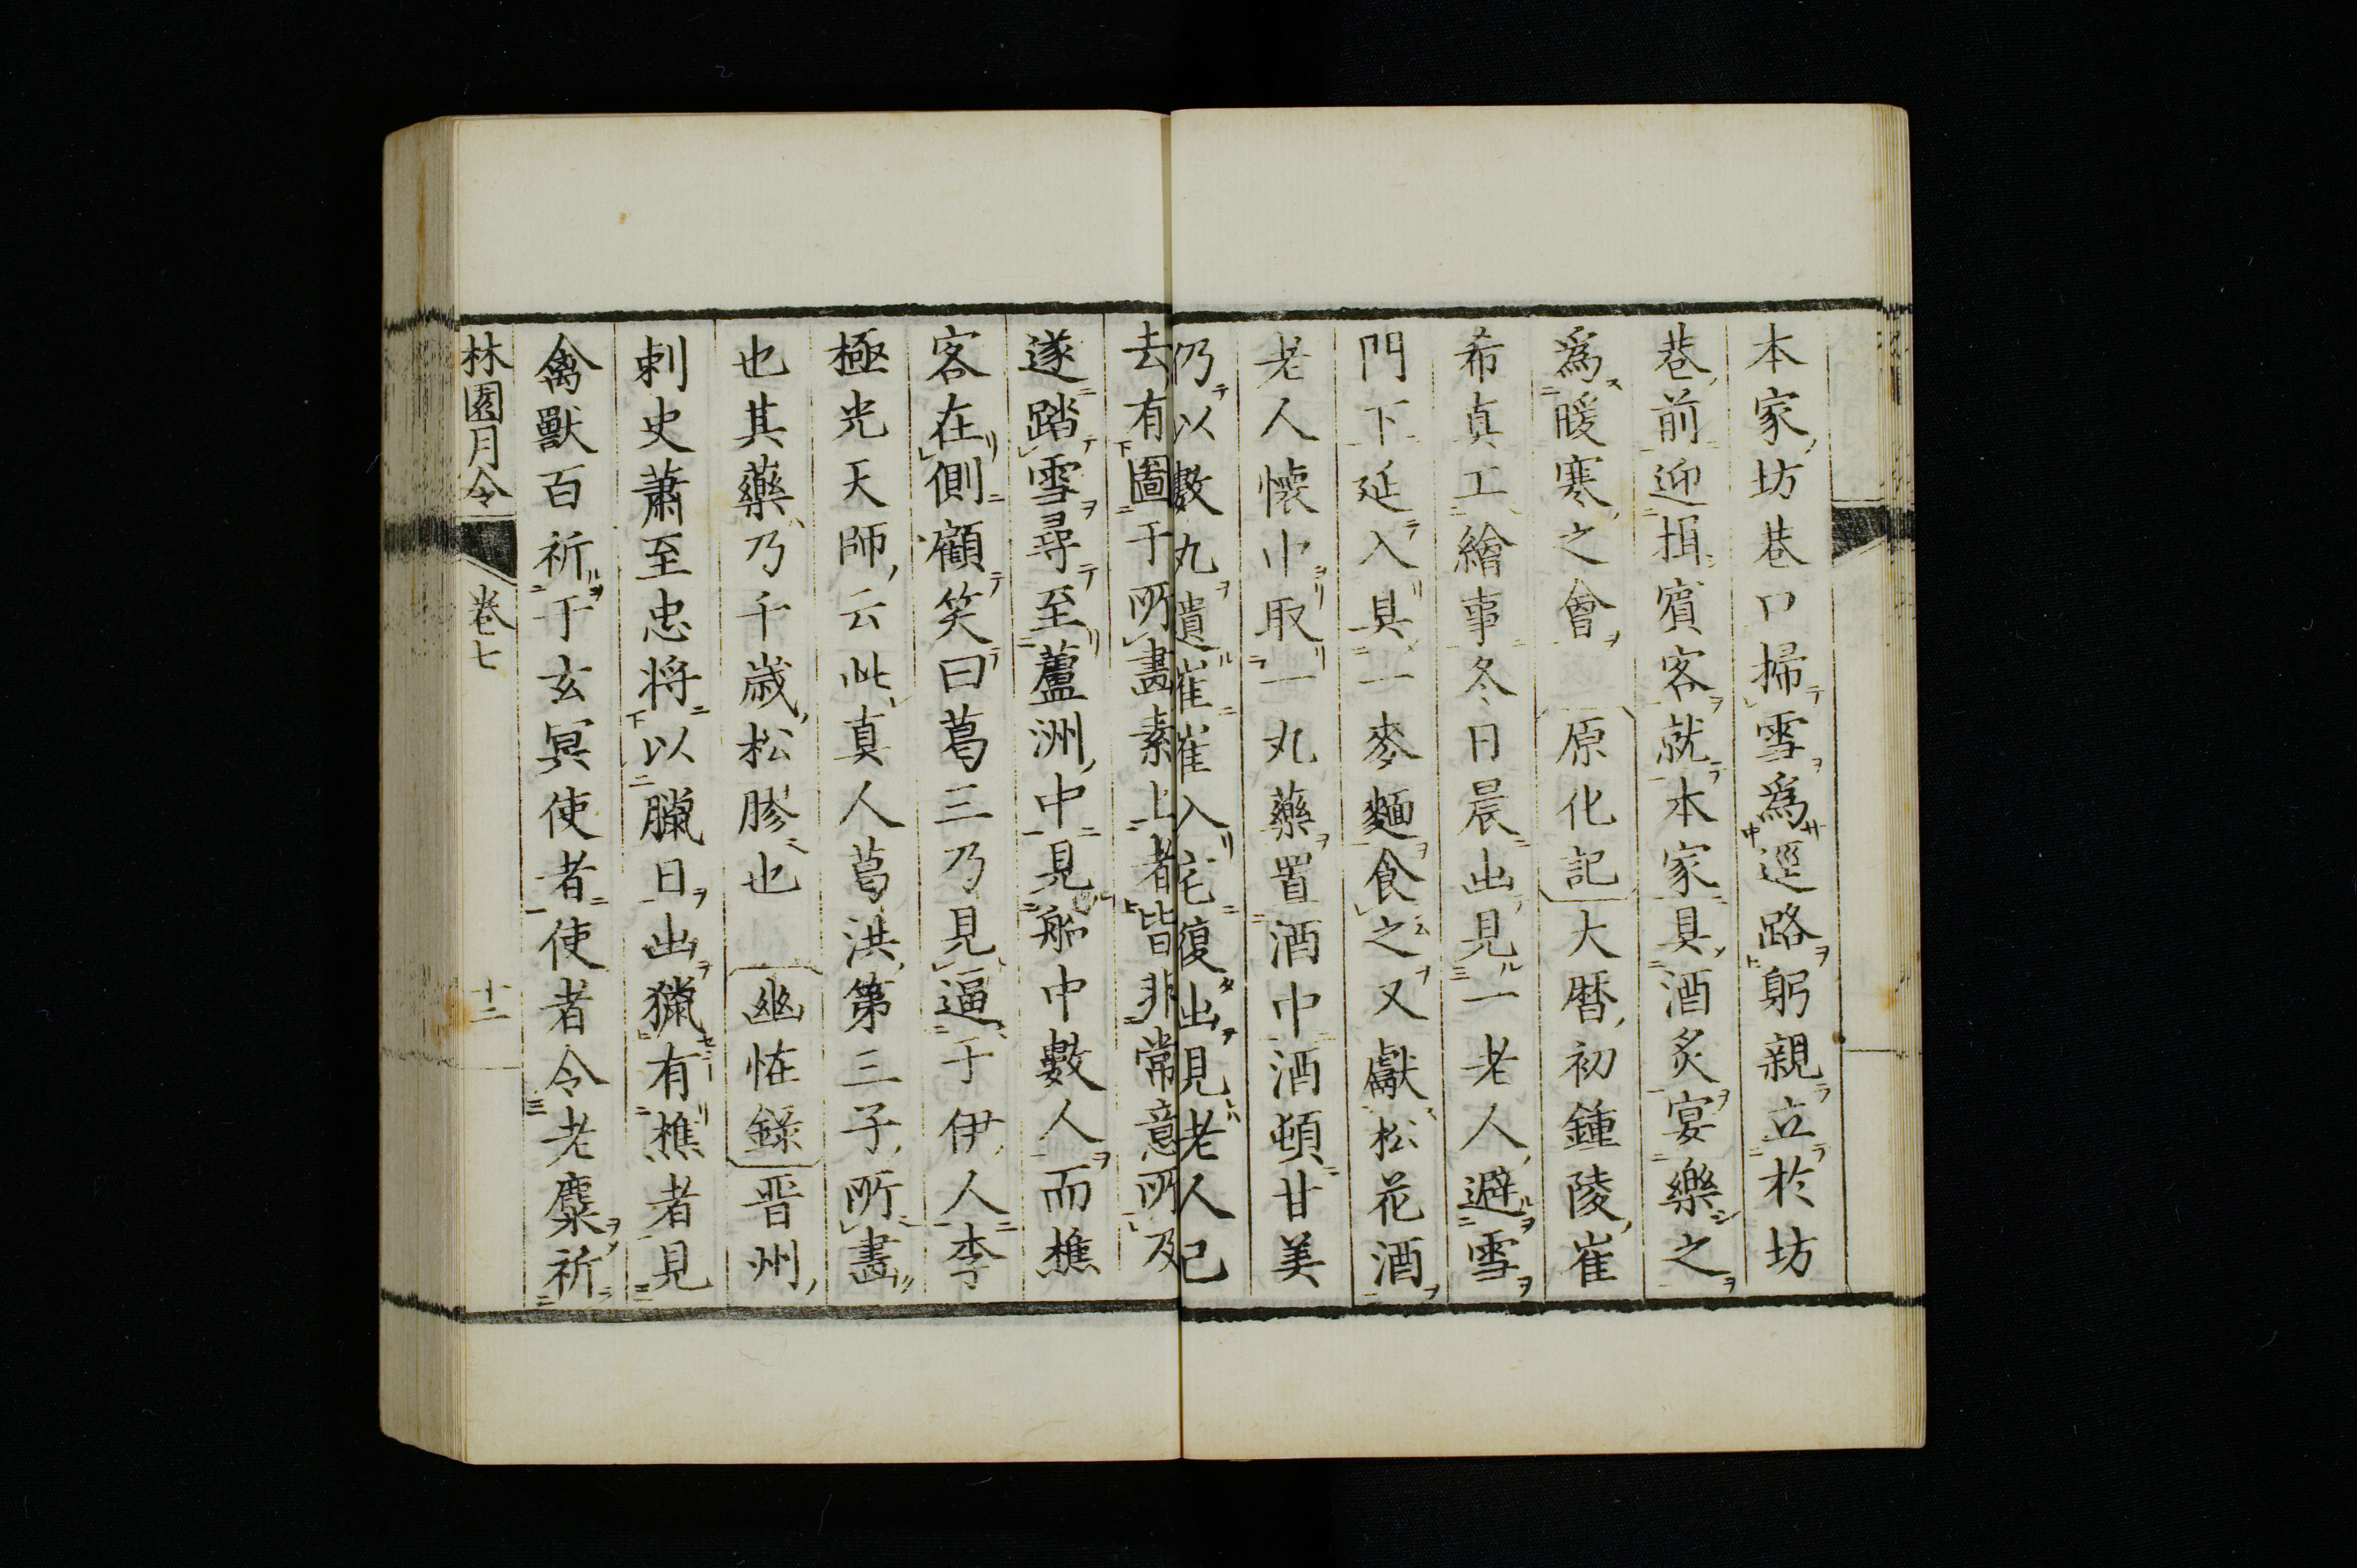 本家坊巷口掃雪爲逕路躬親立於坊
巷前迎揖賓客就本家具酒炙宴樂之
爲暖寒之會 原化記 大曆初鍾陵崔
希真工繪事冬日晨出見一老人避雪
門下延入具一麥麵食之又獻松花酒
老人懷中取一丸藥置酒中酒頓甘美
仍以數丸遺崔崔入宅復出見老人已
去有圖于所畵素上者皆非常意所及
遂踏雪尋至蘆洲中見船中數人而樵
客在側顧笑曰葛三乃見逼于伊人李
極光天師云此真人葛洪第三子所畵
也其藥乃千歲松膠也 幽恠錄 晋州
刺史蕭至忠將以臘日出獵有樵者見
禽獸百祈于玄冥使者使者令老麋祈
林園月令 卷七 十二